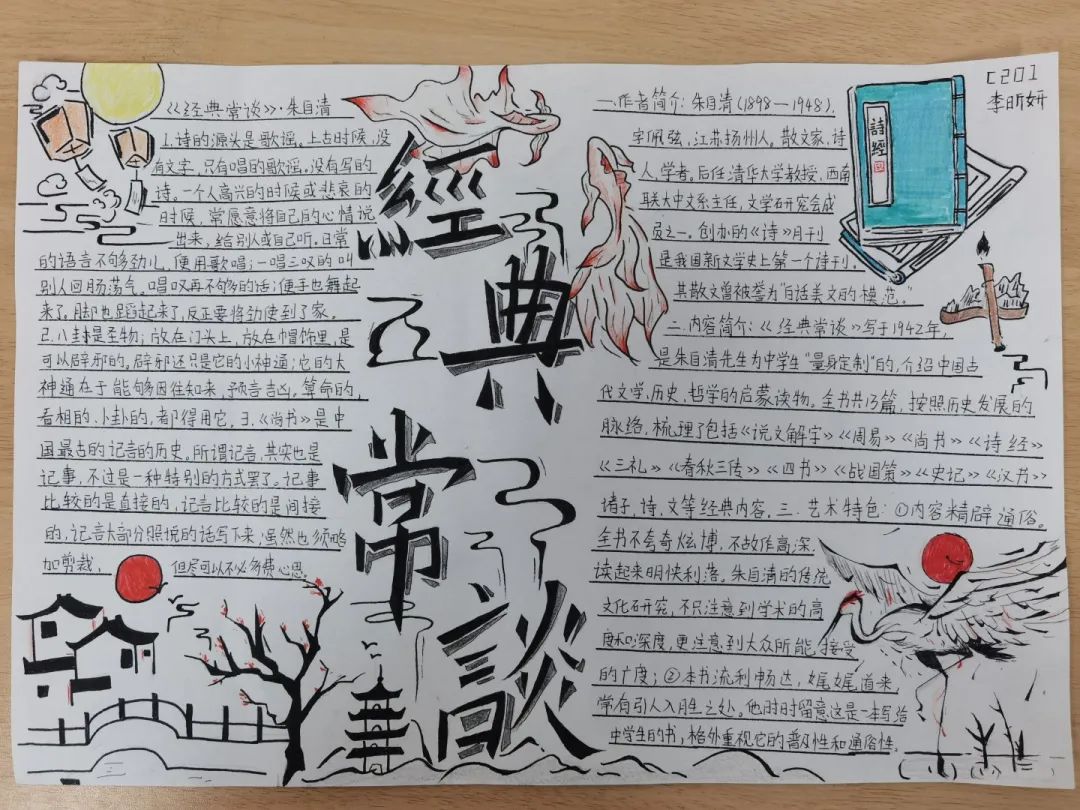 《经典常谈》·朱自清
1.诗的源头是歌谣。上古时候,没
有文字,只有唱的歌谣。没有写的
诗。一个人高兴的时候或悲哀的
时候,常愿意将自己的心情说
出来,给别人或自己听。日常
的语言不够劲儿,便用歌唱;一唱三叹的叫
别人回肠荡气。唱叹再不够的话;便手也舞起
来了,脚也蹈起来了,反正要将劲使到了家。
2.八卦是圣物;放在门头上,放在帽饰里,是
可以辟邪的。辟邪还只是它的小神通;它的大
神通在于能够因往知来,预言吉凶。算命的,
看相的、卜卦的,都得用它。3.《尚书》是中
国最古的记言的历史。所谓记言,其实也是
记事,不过是一种特别的方式罢了。记事
比较的是直接的,记言比较的是间接
的,记言大部分照说的话写下来,虽然也须略
加剪裁,但尽可以不必多费心思。
經典常談
一.作者简介:朱自清(1898—1948),
字佩弦,江苏扬州人。散文家,诗
人,学者。后任清华大学教授,西南
联大中文系主任,文学研究会成
员之一。创办的《诗》月刊
是我国新文学史上第一个诗刊。
其散文曾被誉为"白话美文的模范。"
二.内容简介:《经典常谈》写于1942年,
是朱自清先生为中学生"量身定制"的,介绍中国古
代文学,历史,哲学的启蒙读物。全书共13篇,按照历史发展的
脉络,梳理了包括《说文解字》《周易》《尚书》《诗经》
《三礼》《春秋三传》《四书》《战国策》《史记》《汉书》
诸子,诗,文等经典内容。三.艺术特色:①内容精辟通俗。
全书不夸奇炫博,不故作高深,
读起来明快利落。朱自清的传统
文化研究,不只注意到学术的高
度和深度,更注意到大众所能接受
的广度;②本书流利畅达,娓娓道来,
常有引人入胜之处。他时时留意这是一本写给
中学生的书,格外重视它的普及性和通俗性。
詩經
C201
李昕妍